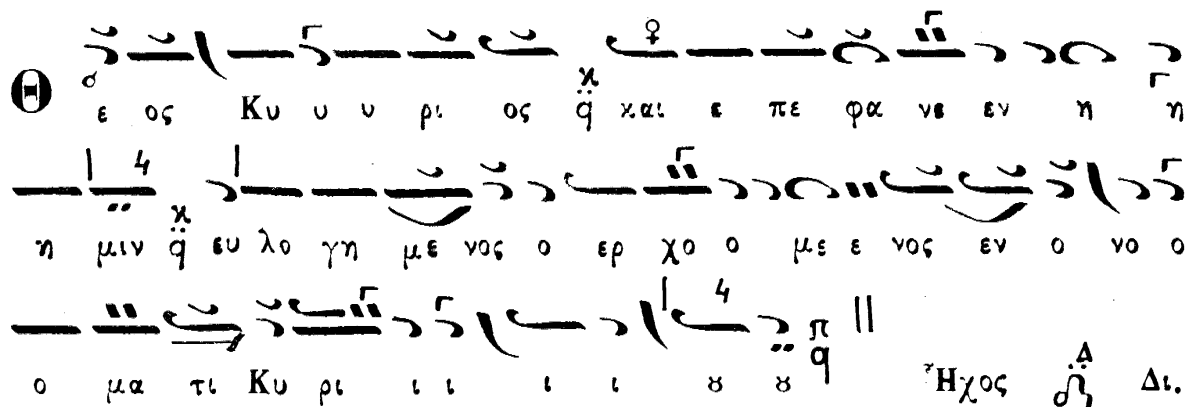 Θ ε ος Κυ υ υ ρι ος και ε πε φα νε εν η η
η μιν ευ λο γη με νος ο ερ χο ο με ε νος εν ο νο ο
ο μα τι Κυ ρι ι ι ι ι ȣ ȣ Ἦχος Δ Δι.